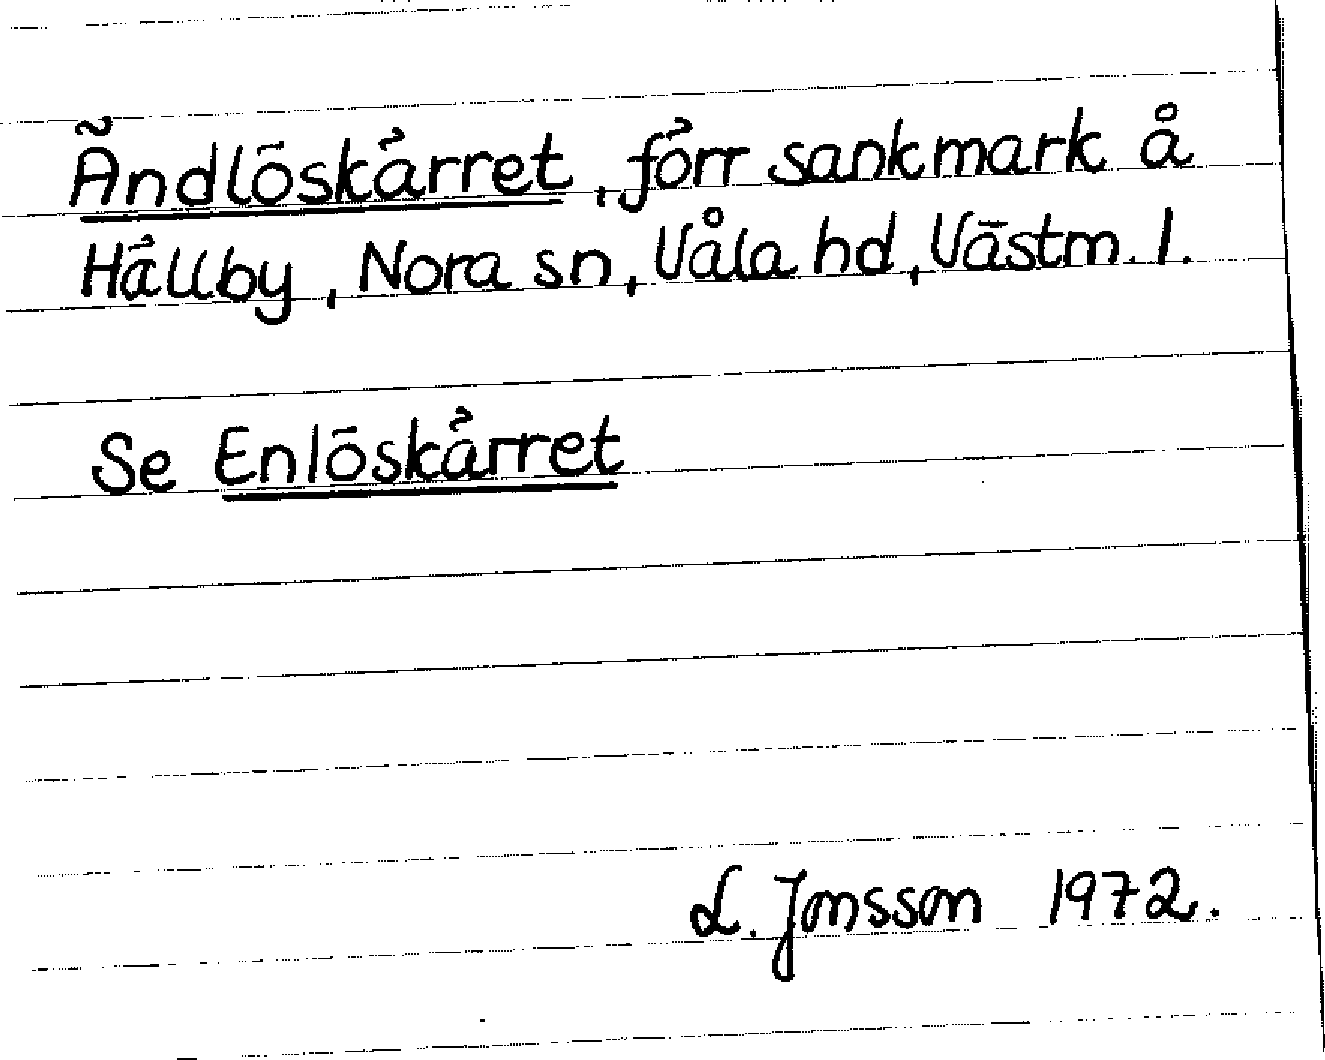 Ändlöskärret, förr sankmark å
Hällby, Nora sn, Våla hd, Västm. l.
Se Enlöskärret
L. Jonsson 1972.